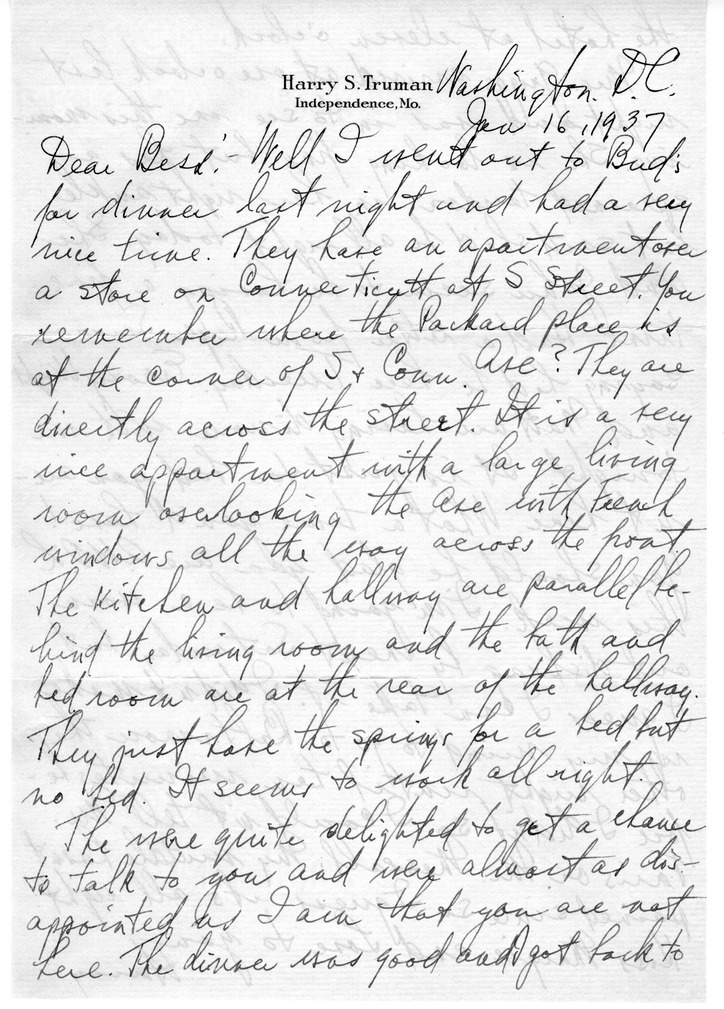 Harry S. Truman
Independence, Mo.
Washington, D.C.
Jan 16, 1937
Dear Bess:- Well I went out to Bud's
for dinner last night and had a very
nice time. They have an apartment over
a store on Connecticutt at S Street. You
remember where the Packard place is
at the corner of S & Conn. Ave? They are
directly across the street. It is a very
nice appartment with a large living
room overlooking the Ave with French
windows all the way across the front.
The kitchen and hallway are parallel be-
hind the living room and the bath and
bed room are at the rear of the hallway.
They just have the springs for a bed but
no bed. It seems to work all right.
The were quite delighted to get a chance
to talk to you and were almost as dis-
appointed as I am that you are not
here. The dinner was good and I got back to